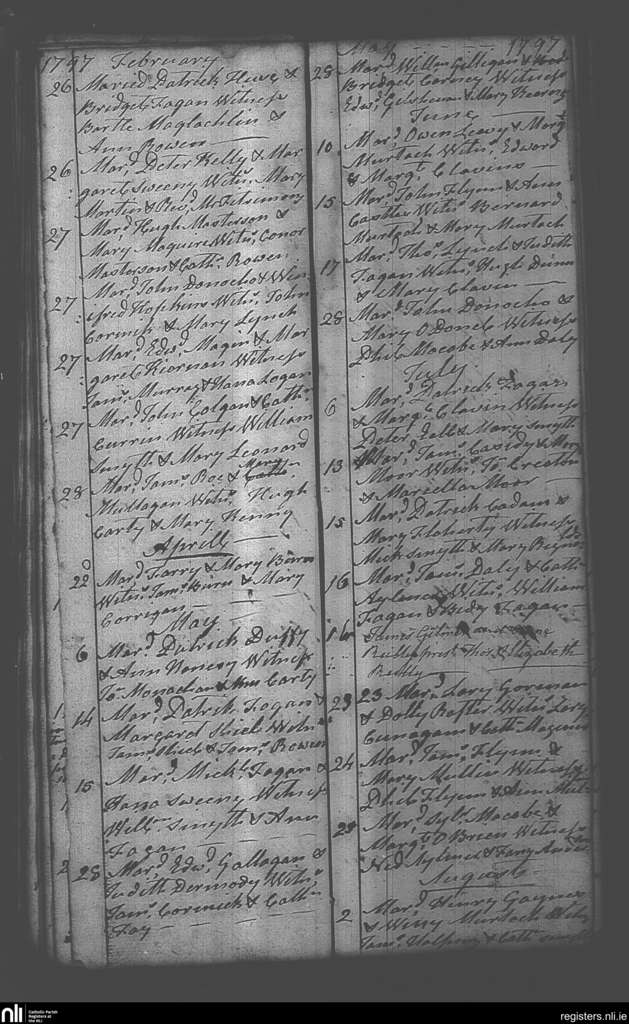 1797 February
26 Maried Patrick Heavy &
Bridget Fagan Witness
Bartle Maglachlin &
Ann Bowen
26 Mard Peter Kelly & Mar
garet Sweeny Witns Mary
Martin & Revd
27 Mard Hugh Masterson &
Mary Maguire Witns Conor
Masterson & Cathn Bowen
27 Mard John Donocho & Win
ifred Hopkins Witns John
Cormick & Mary Lynch
27 Mard Edwd Magan & Mar
garet Kiernan Witness
Jams Murray & Hana Logan
27 Mard John Colgan & Cathn
Curren Witness William
Smyth & Mary Leonard
28 Mard Jams Roe & Mary
Mullagan Witns Hugh
Carty & Mary Kenny
Aprill
22 Mard Farry & Mary Birn
Witns Jams Birn & Mary
Corregan
May
6 Mard Patrick Duffy
& Ann Witness
To Monachan & Carty
14 Mard Patrick Fagan &
Margaret Shiel Witns
Jams Shiel & Jams Bowen
15 Mard Michl Fagan &
Hana Sweeny Witness
Willm Smyth & Ann
Fagan
28 Mard Edwd Gallagan &
Judith Dermody Witns
Jams Cormick & Cathn
Fay
May 1797
28 Mard Willm Gilligan &
Bridget Carney Witness
Edwd & Mary Kearny
June
10 Mard Owen Leavy & Margt
Murtach Witns Edward
& Margt Clavin
15 Mard John Flynn & Ann
Castles Witns Bernard
Murtach & Mary Murtach
17 Mard Thos Lynch & Judith
Fagan Witns Hugh Dunn
& Mary Clavin
28 Mard John Donocho &
Mary O Donel Witness
Phil Macabe & Ann Daly
July
6 Mard Patrick Fagan
& Margt Clavin Witness
Peter Fall & Mary Smyth
13 Mard Jams Casidy &
Moor Witns To Creaton
& Marcella Moor
15 Mard Patrick Cadam &
Mary Flaherty Witness
Mick Smyth & Mary
16 Mard Jams Daly & Cathn
Witns William
Fagan & Bidy Fagan
16 James Gilmor and
Reilly prest Thos & Elizabeth
Reilly
23 23 Mard Lory Gorman
& Dolly Rafter Witns Lory
Cunagan & Cathn
24 Mard Jams Flynn &
Mary Mullin Witness
Phil Flynn & Ann
25 Mard Sylv Macabe &
Margt O Breen Witness
Ned & Fanny
August
2 Mard Henry Gaynor
& Winy Murtach Witns
Jams Halfpeny & Cathn Smyth
nli Catholic Parish
Registers at
the NLI
registers.nli.ie